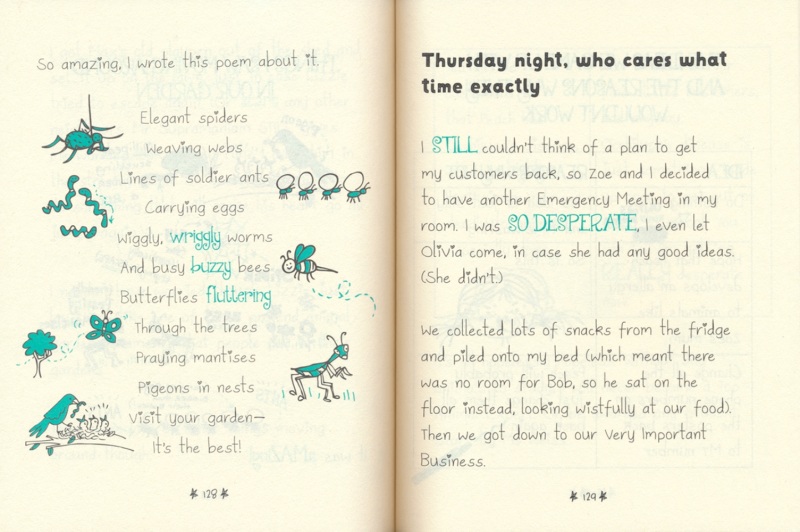 So amazing, I wrote this poem about it.
Elegant spiders
Weaving webs
Lines of soldier ants
Carrying eggs
Wiggly, wriggly worms
And busy buzzy bees
Butterflies fluttering
Through the trees
Praying mantises
Pigeons in nests
Visit your garden—
It's the best!
128
Thursday night, who cares what
time exactly
I STILL couldn't think of a plan to get
my customers back, so Zoe and I decided
to have another Emergency Meeting in my
room. I was SO DESPERATE, I even let
Olivia come, in case she had any good ideas.
(She didn't.)
We collected lots of snacks from the fridge
and piled onto my bed (which meant there
was no room for Bob, so he sat on the
floor instead, looking wistfully at our food).
Then we got down to our Very Important
Business.
129